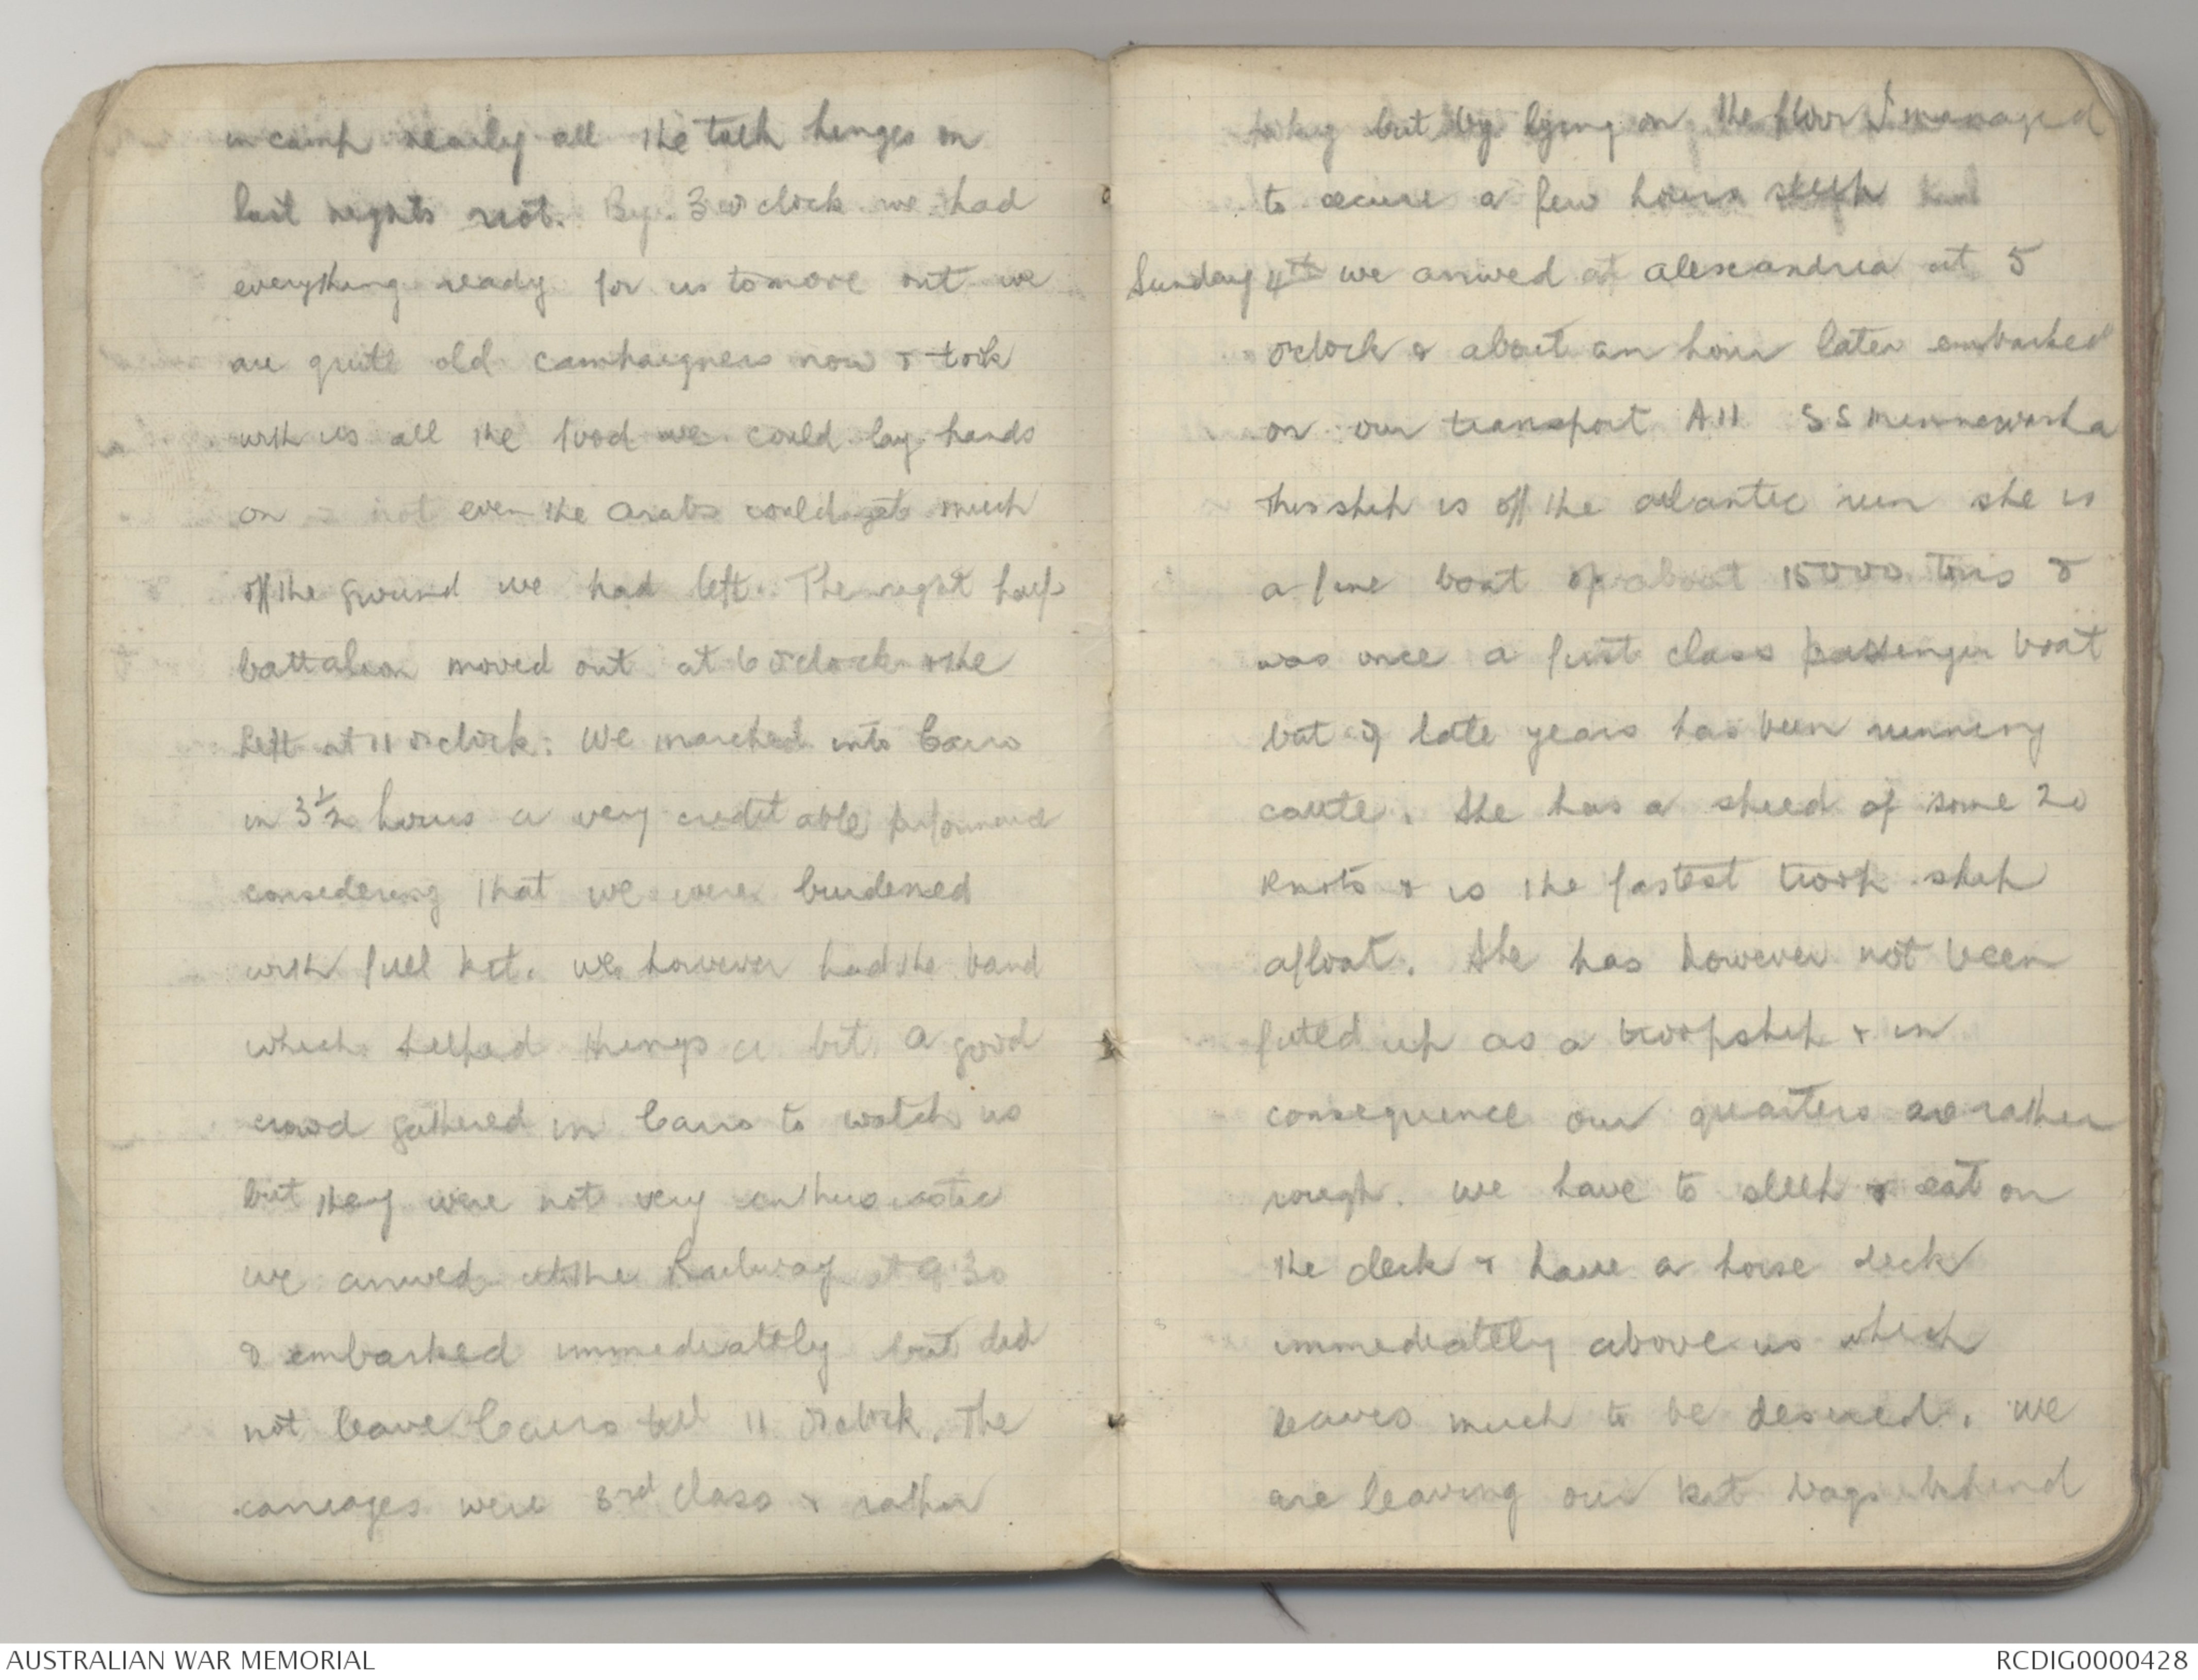 in camp nearly all the talk hinges on
last nights riot. By 3 o'clock we had
everything ready for us to move out we
are quite old campaigners now & took
with us all the food we could lay hands
on not even the Arabs could get much
off the ground we had left. The right half
battalion moved out at 6 o'clock & the
left at 11 o'clock. We marched into Cairo
in 3½ hours a very creditable performance
considering that we were burdened
with full kit. we however had the band
which helped things a bit. A good
crowd gathered in Cairo to watch us
but they were not very enthusiastic
we arrived at the Railway at 9.30
& embarked immediattly but did
not leave Cairo till 11 o'clock. The
carriages were 3rd class & rather
but by lying on the floor I managed
to secure a few hours sleep
Sunday 4th we arrived at Alexandria at 5
o'clock & about an hour later embarked
on our transport A11 SS Minnewaska
This ship is off the atlantic run she is
a fine boat of about 15000 tons &
was once a first class passenger boat
but of late years has been running
cattle. She has a speed of some 20
knots & is the fastest troop ship
afloat. She has however not been
fitted up as a troopship & in
consequence our quarters are rather
rough. we have to sleep & eat on
the deck & have a horse deck
immediattly above us which
leaves much to be desired. We
are leaving our kit bags behind
AUSTRALIAN WAR MEMORIAL
RCDIG0000428